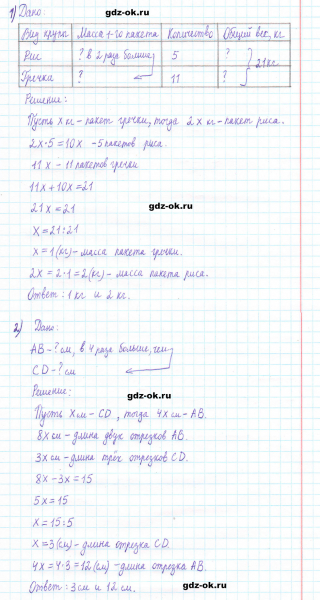 gdz-ok.ru
1) Дано:
Вид крупы Масса 1-го пакета Количество Общий вес, кг
Рис ? в 2 раза больше 5 ? 21кг
Гречки ? 11 ?
Решение:
gdz-ok.ru
Пусть x кг - пакет гречки, тогда 2x кг - пакет риса.
2x·5=10x - 5 пакетов риса.
11x - 11 пакетов гречки
11x+10x=21
21x=21
gdz-ok.ru
x=21:21
x=1(кг) - масса пакета гречки.
2x=2·1=2(кг) - масса пакета риса.
Ответ: 1 кг и 2 кг.
gdz-ok.ru
2) Дано:
AB - ? см, в 4 раза больше, чем
CD - ? см
Решение:
gdz-ok.ru
Пусть x см - CD, тогда 4x см - AB.
8x см - длина двух отрезков AB.
3x см - длина трёх отрезков CD.
8x - 3x = 15
5x = 15
gdz-ok.ru
x = 15:5
x = 3(см) - длина отрезка CD.
4x = 4·3 = 12(см) - длина отрезка AB.
Ответ: 3 см и 12 см.
gdz-ok.ru